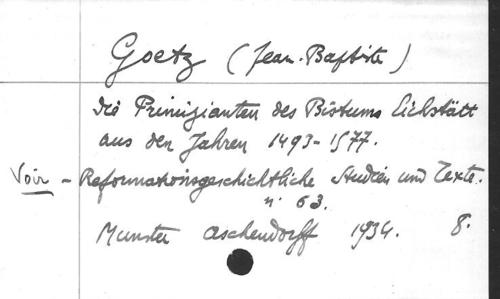 Goetz (Jean-Baptiste)
Die Primizianten des Bistums Eichstätt
aus den Jahren 1493-1577.
Voir - Reformationsgeschichtliche Studien und Texte.
n° 63.
Munster Aschendorff 1934. 8.